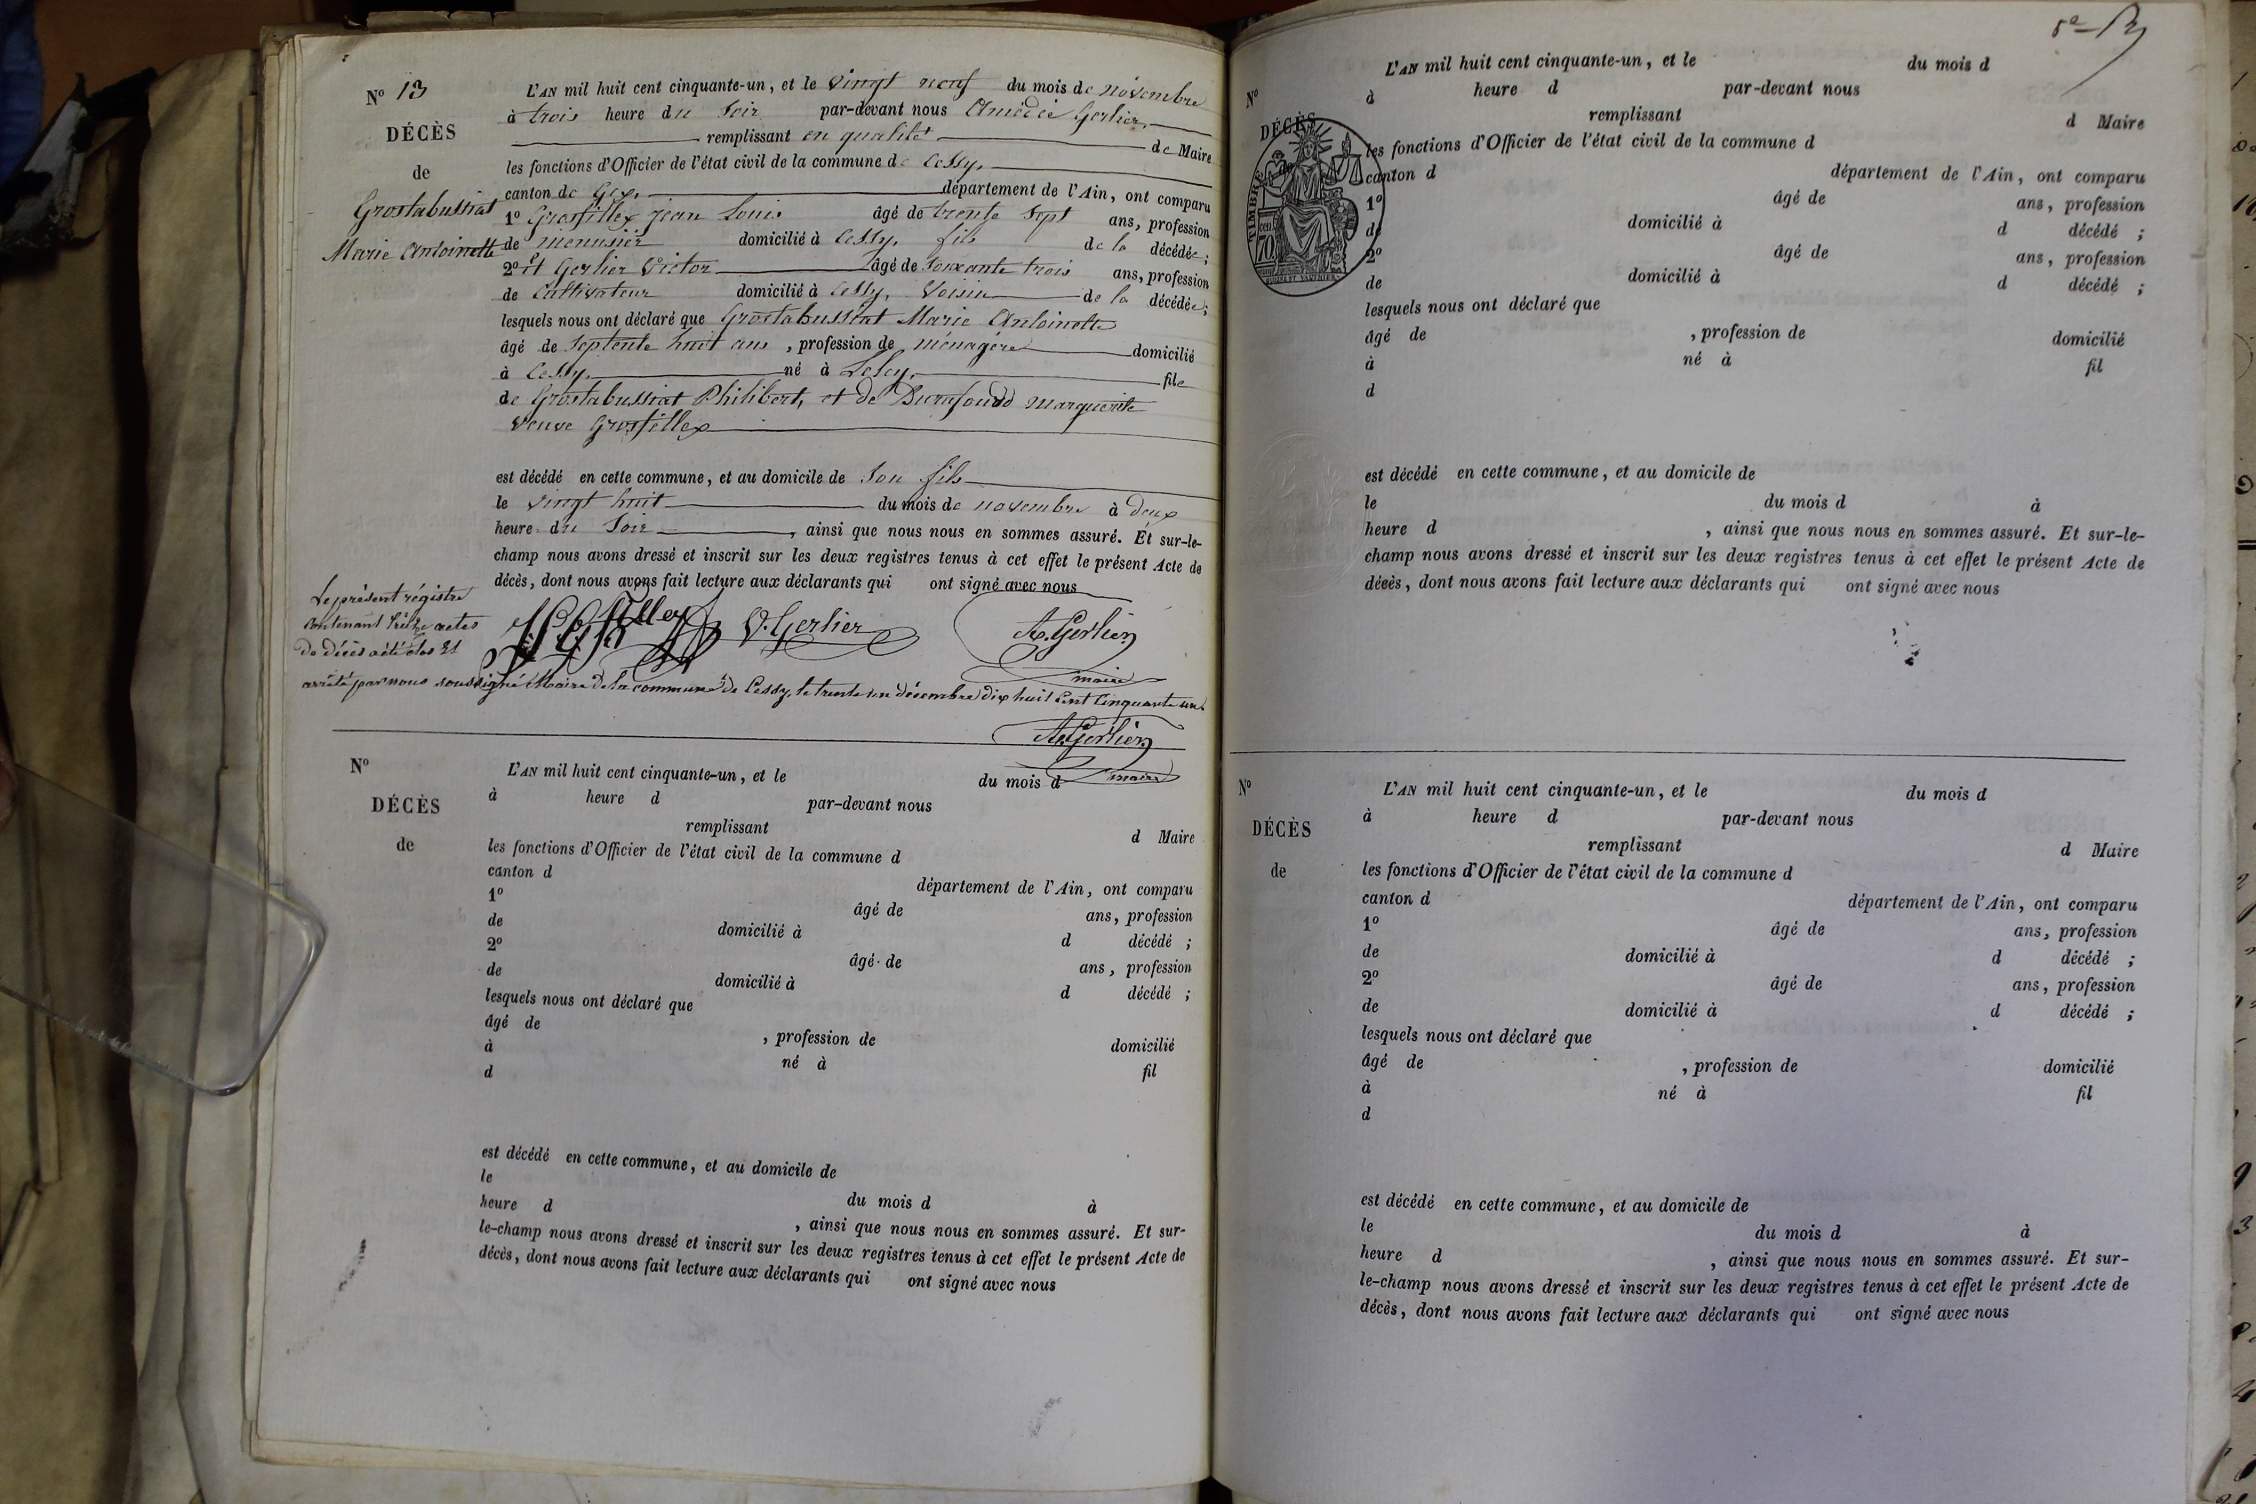 Nº 13
DÉCÈS
de
Grostabussiat
Marie Antoinette
L'AN mil huit cent cinquante-un, et le vingt neuf du mois de novembre
à trois heure du soir par-devant nous Amédée Gerlier,
remplissant en qualité de Maire
les fonctions d'Officier de l'état civil de la commune de Cessy,
canton de Gex, département de l'Ain, ont comparu
1º Grosfillex jean Louis âgé de trente sept ans, profession
de menusier domicilié à Cessy, fils de la décédée ;
2º et Gerlier Victor âgé de soixante trois ans, profession
de Cultivateur domicilié à Cessy, Voisin de la décédée ;
lesquels nous ont déclaré que Grostabussiat Marie Antoinette
âgé de septente huit ans , profession de ménagère domicilié
à Cessy, né à file
de Grostabussiat Philibert, et de marguerite
veuve Grosfillex
est décédé en cette commune, et au domicile de Son fils
le vingt huit du mois de novembre à deux
heure du Soir , ainsi que nous nous en sommes assuré. Et sur-le-
champ nous avons dressé et inscrit sur les deux registres tenus à cet effet le présent Acte de
décès, dont nous avons fait lecture aux déclarants qui ont signé avec nous
V. Gerlier A. Gerlier
maire
Le présent régistre
contenant treize actes
de décès a été clos et
arrêté par nous soussigné Maire de la commune de Cessy, le trente un décembre dix huit cent cinquante un.
A. Gerlier
maire
Nº
DÉCÈS
de
L'AN mil huit cent cinquante-un, et le du mois d
à heure d par-devant nous
remplissant d Maire
les fonctions d'Officier de l'état civil de la commune d
canton d département de l'Ain, ont comparu
1º âgé de ans, profession
de domicilié à d décédé ;
2º âgé de ans, profession
de domicilié à d décédé ;
lesquels nous ont déclaré que
âgé de , profession de domicilié
à né à fil
d
est décédé en cette commune, et au domicile de
le du mois d à
heure d , ainsi que nous nous en sommes assuré. Et sur-
le-champ nous avons dressé et inscrit sur les deux registres tenus à cet effet le présent Acte de
décès, dont nous avons fait lecture aux déclarants qui ont signé avec nous
Nº
DÉCÈS
TIMBRE
70
L'AN mil huit cent cinquante-un, et le du mois d
à heure d par-devant nous
remplissant d Maire
les fonctions d'Officier de l'état civil de la commune d
canton d département de l'Ain, ont comparu
1º âgé de ans, profession
de domicilié à d décédé ;
2º âgé de ans, profession
de domicilié à d décédé ;
lesquels nous ont déclaré que
âgé de , profession de domicilié
à né à fil
d
est décédé en cette commune, et au domicile de
le du mois d à
heure d , ainsi que nous nous en sommes assuré. Et sur-le-
champ nous avons dressé et inscrit sur les deux registres tenus à cet effet le présent Acte de
décès, dont nous avons fait lecture aux déclarants qui ont signé avec nous
Nº
DÉCÈS
de
L'AN mil huit cent cinquante-un, et le du mois d
à heure d par-devant nous
remplissant d Maire
les fonctions d'Officier de l'état civil de la commune d
canton d département de l'Ain, ont comparu
1º âgé de ans, profession
de domicilié à d décédé ;
2º âgé de ans, profession
de domicilié à d décédé ;
lesquels nous ont déclaré que
âgé de , profession de domicilié
à né à fil
d
est décédé en cette commune, et au domicile de
le du mois d à
heure d , ainsi que nous nous en sommes assuré. Et sur-
le-champ nous avons dressé et inscrit sur les deux registres tenus à cet effet le présent Acte de
décès, dont nous avons fait lecture aux déclarants qui ont signé avec nous